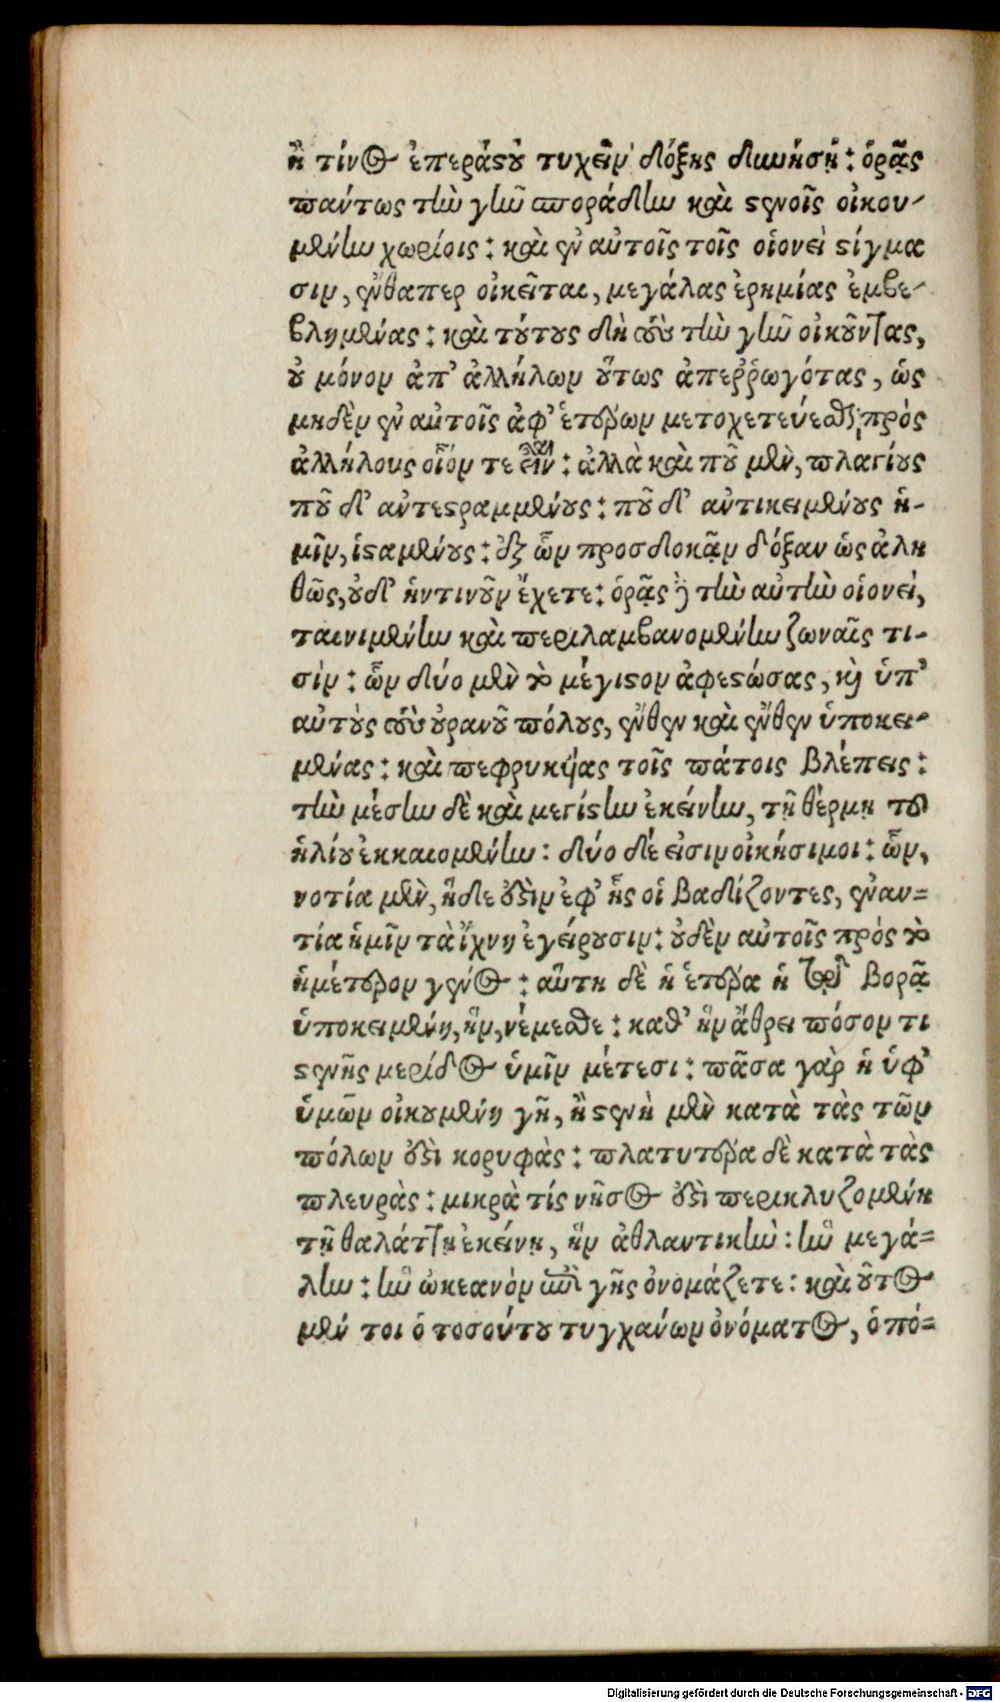 ἢ τίνος ἐπεράστου τυχεῖν δόξης δυνήσῃ: ὁρᾷς
πάντως τὴν γῆν σποράδην καὶ στενοῖς οἰκου-
μένην χωρίοις: καὶ ἐν αὐτοῖς τοῖς οἱονεὶ στίγμα
σιν, ἔνθαπερ οἰκεῖται, μεγάλας ἐρημίας ἐμβε-
βλημένας: καὶ τούτους δὴ τοὺς τὴν γῆν οἰκοῦντας,
οὐ μόνον ἀπ' ἀλλήλων οὕτως ἀπερῤῥωγότας, ὡς
μηδὲν ἐν αὐτοῖς ἀφ' ἑτέρων μετοχετεύεσθαι πρὸς
ἀλλήλους οἷόν τε εἶναι: ἀλλὰ καὶ ποῦ μὲν, πλαγίους
ποῦ δ' ἀντεστραμμένους: ποῦ δ' ἀντικειμένους ἡ-
μῖν, ἱσαμένους: ἐξ ὧν προσδοκᾷν δόξαν ὡς ἀλη
θῶς, οὐδ' ἡντινοῦν ἔχετε: ὁρᾷς δὲ τὴν αὐτὴν οἱονεὶ,
ταινιμένην καὶ περιλαμβανομένην ζωναῖς τι-
σὶν: ὧν δύο μὲν τὸ μέγιστον ἀφεστώσας, καὶ ὑπ'
αὐτοὺς τοὺς οὐρανοῦ πόλους, ἔνθεν καὶ ἔνθεν ὑποκει-
μένας: καὶ πεφρυκυίας τοῖς πάτοις βλέπεις:
τὴν μέσην δὲ καὶ μεγίστην ἐκείνην, τῇ θέρμῃ τοῦ
ἡλίου ἐκκαιομένην: δύο δέ εἰσιν οἰκήσιμοι: ὧν,
νοτία μὲν, ἥδε ἐστὶν ἐφ' ἧς οἱ βαδίζοντες, ἐναν=
τία ἡμῖν τὰ ἴχνη ἐγείρουσιν: οὐδὲν αὐτοῖς πρὸς τὸ
ἡμέτερον γένος: αὕτη δὲ ἡ ἑτέρα ἡ τῷ βορᾷ
ὑποκειμένη, ἣν, νέμεσθε: καθ' ἣν ἄθρει πόσον τι
στενῆς μερίδος ὑμῖν μέτεστι: πᾶσα γὰρ ἡ ὑφ'
ὑμῶν οἰκουμένη γῆ, ἣ στενὴ μὲν κατὰ τὰς τῶν
πόλων ἐστὶ κορυφὰς: πλατυτέρα δὲ κατὰ τὰς
πλευρὰς: μικρὰ τίς νῆσος ἐστὶ περικλυζομένη
τῇ θαλάττῃ ἐκείνῃ, ἣν ἀθλαντικὴν: ἣν μεγά=
λην: ἣν ὠκεανὸν ἐπὶ γῆς ὀνομάζετε: καὶ οὗτος
μέν τοι ὁ τοσούτου τυγχάνων ὀνόματος, ὁπό=
Digitalisierung gefördert durch die Deutsche Forschungsgemeinschaft - DFG